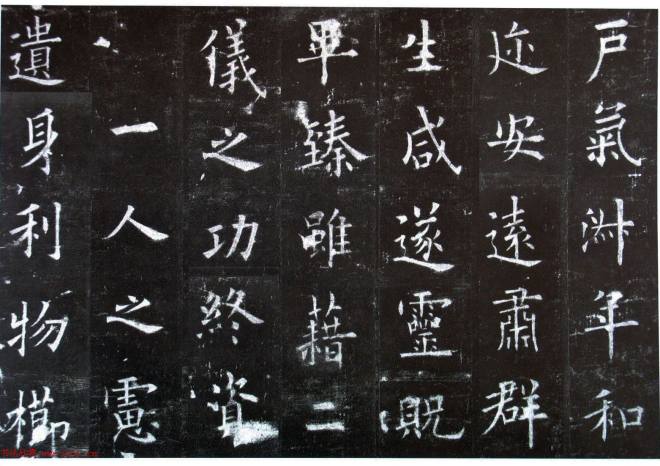 戸氣淋年和
迩安遠肅群
生咸遂靈貺
畢臻雖藉二
儀之功終資
一人之慮
遺身利物櫛